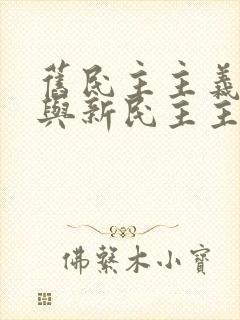 舊民主主義
與新民主主
佛繫木小寶